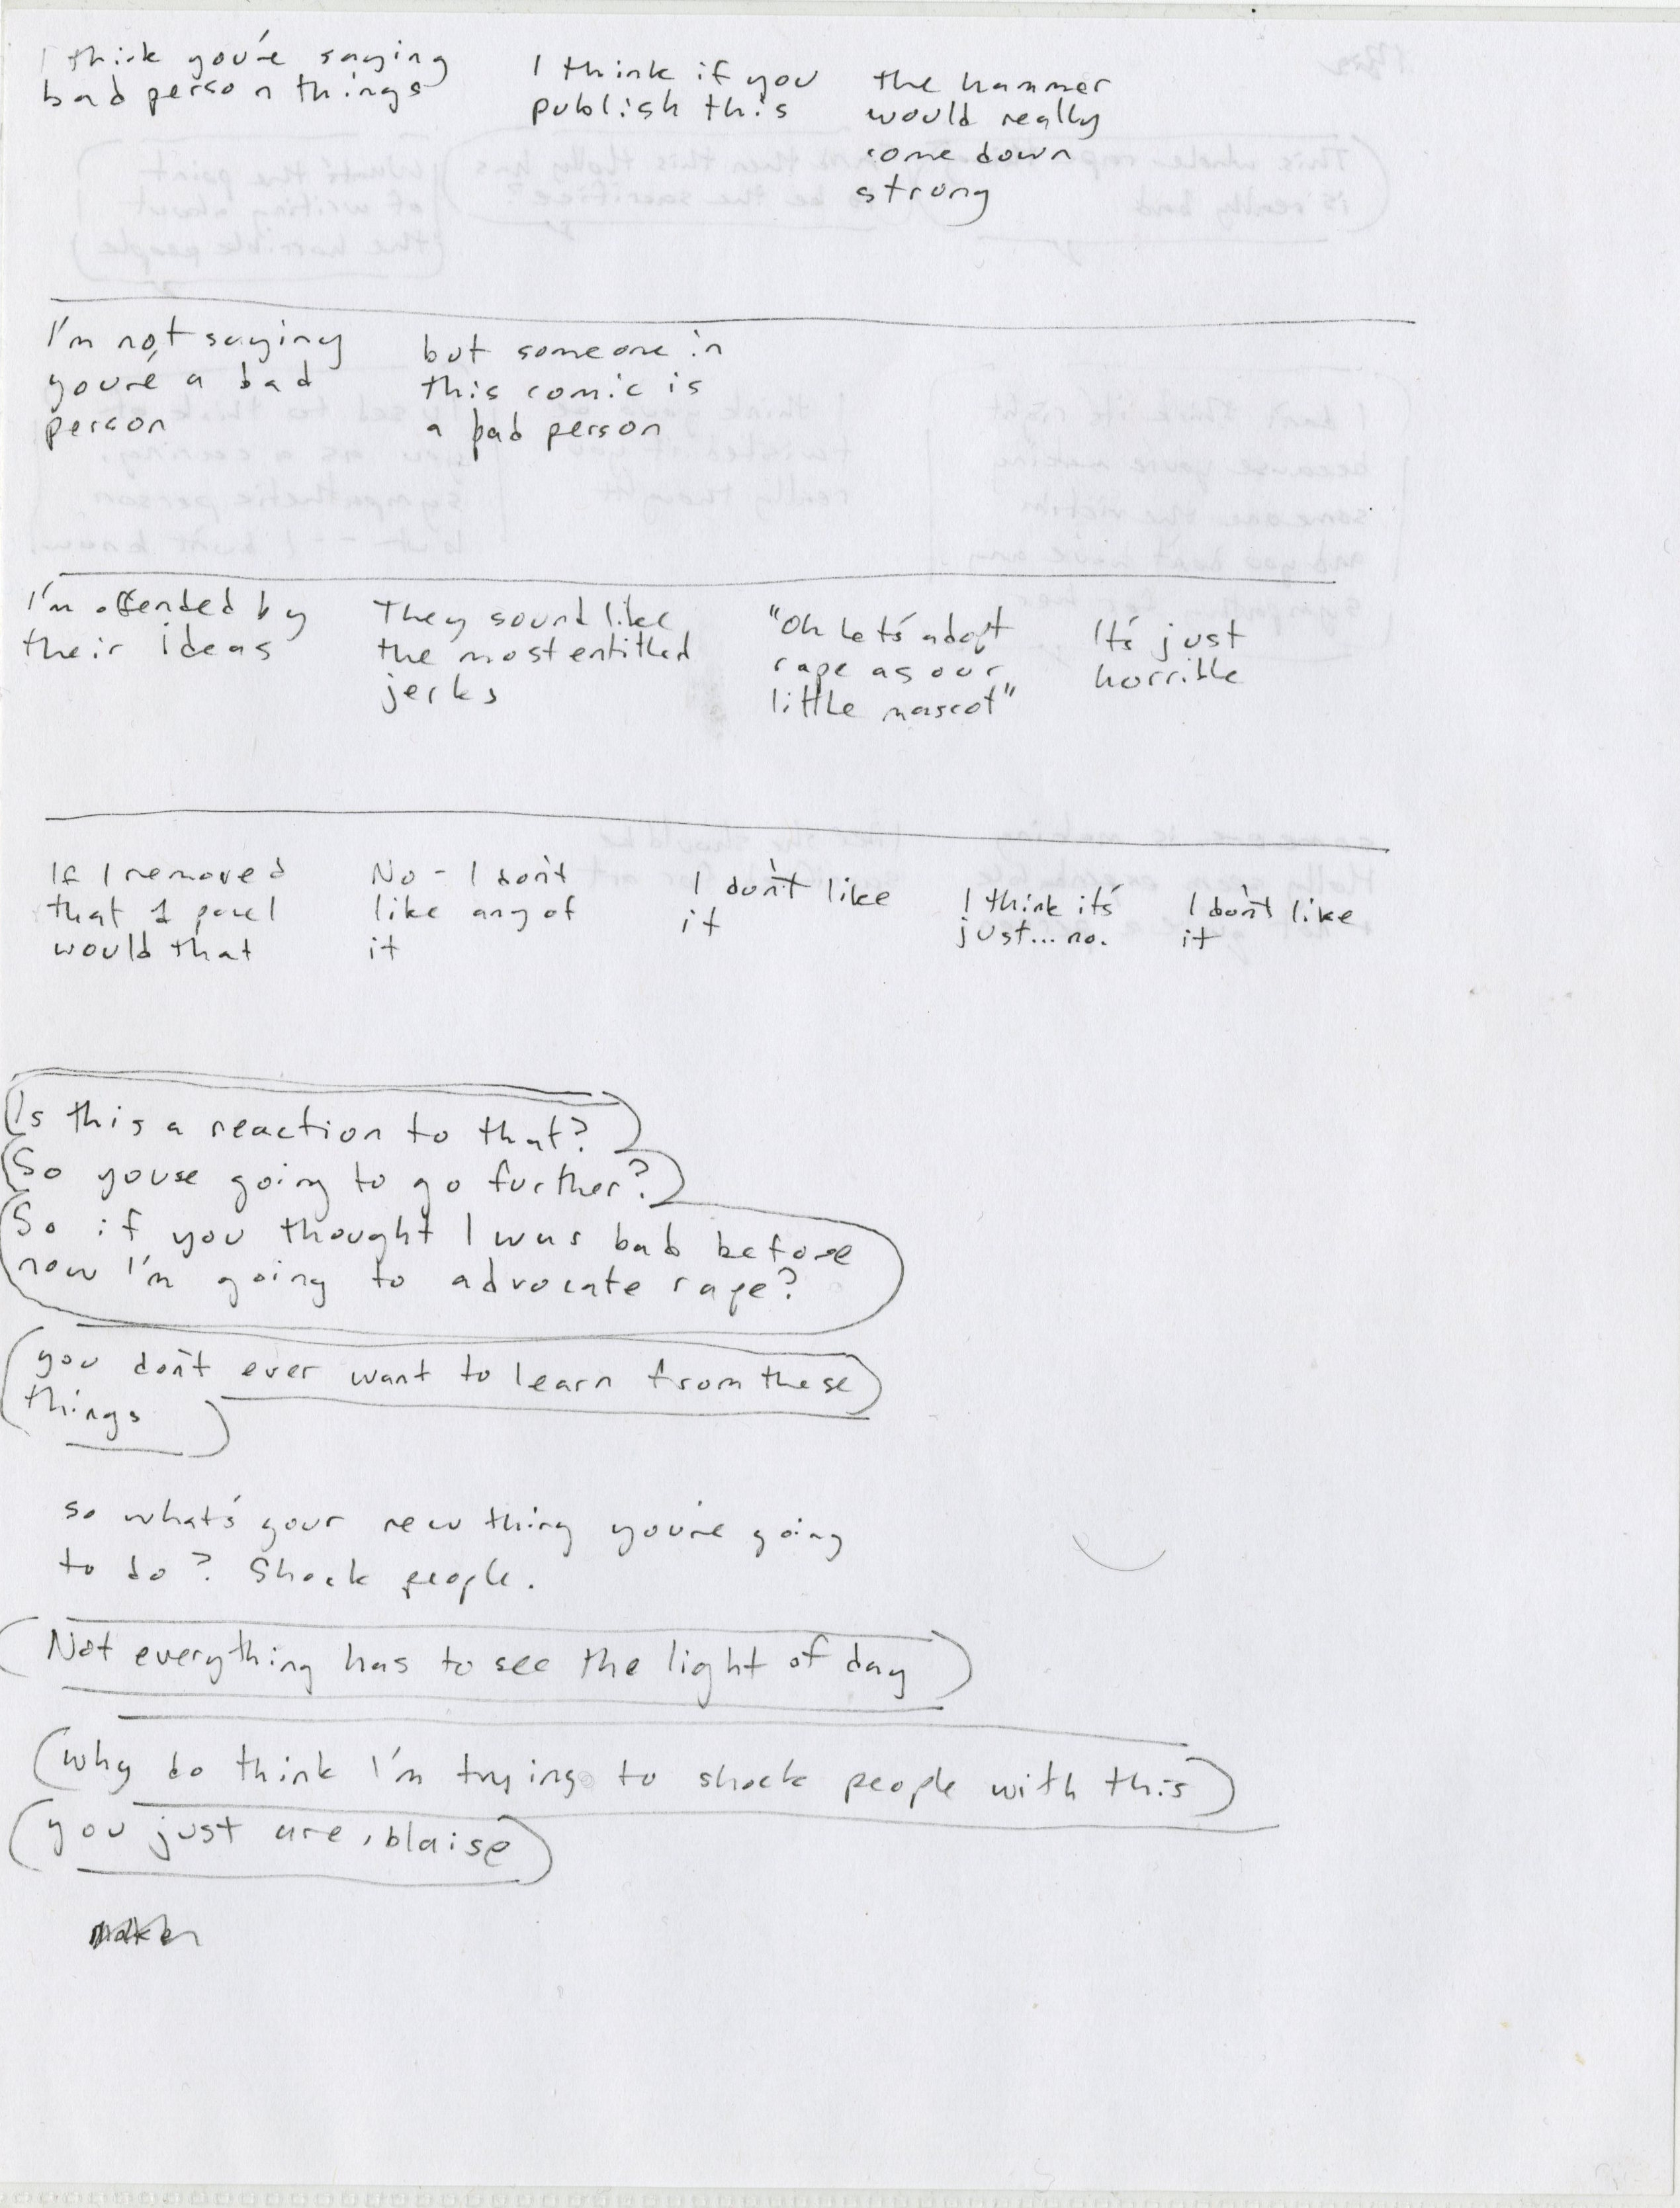 I think you're saying
bad person things
I think if you
publish this
the hammer
would really
come down
strong
I'm not saying
you're a bad
person
but someone in
this comic is
a bad person
I'm offended by
their ideas
They sound like
the most entitled
jerks
"Oh let's adopt
rape as our
little mascot"
It's just
horrible
If I removed
that 1 panel
would that
No - I don't
like any of
it
I don't like
it
I think it's
just... no.
I don't like
it
Is this a reaction to that?
So youse going to go further?
So if you thought I was bad before
now I'm going to advocate rape?
you don't ever want to learn from these
things
so what's your new thing you're going
to do? Shock people.
Not everything has to see the light of day
Why do think I'm trying to shock people with this
you just are, blaise